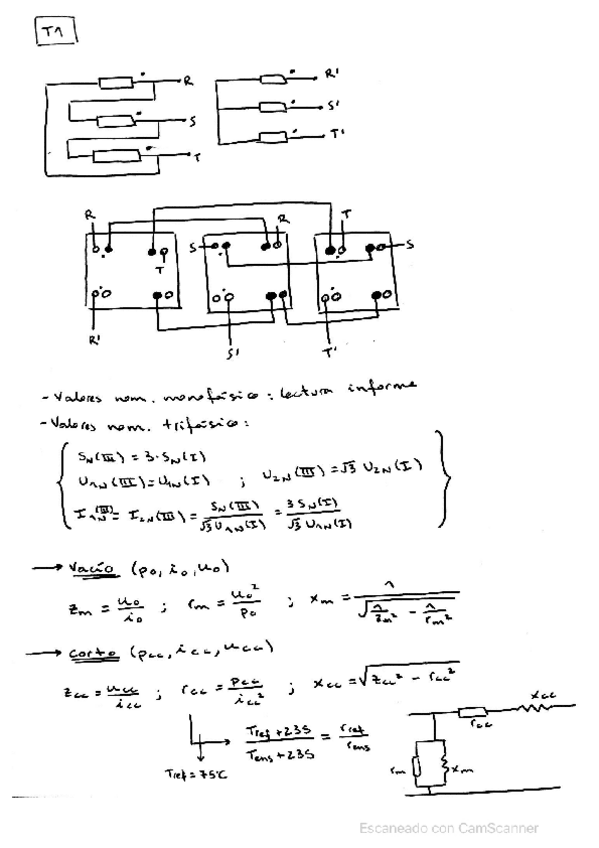 T1
R
S
T
R'
S'
T'
R
S
R
T
S
T
R'
S'
T'
- Valores nom. monofásico: lectura informe
- Valores nom. trifásico:
S_N(III) = 3·S_N(I)
U_1N(III) = U_1N(I) ; U_2N(III) = √3 U_2N(I)
I_1N(III) = I_2N(III) = S_N(III) / √3 U_1N(I) = 3 S_N(I) / √3 U_1N(I)
→ Vacío (p_0, i_0, u_0)
z_m = u_0 / i_0 ; r_m = u_0² / p_0 ; x_m = 1 / √(1/z_m² - 1/r_m²)
→ Corto (p_cc, i_cc, u_cc)
z_cc = u_cc / i_cc ; r_cc = p_cc / i_cc² ; x_cc = √(z_cc² - r_cc²)
x_cc
r_cc
→ T_ref + 235 / T_ens + 235 = r_ref / r_ens
T_ref = 75℃
r_m
x_m
Escaneado con CamScanner